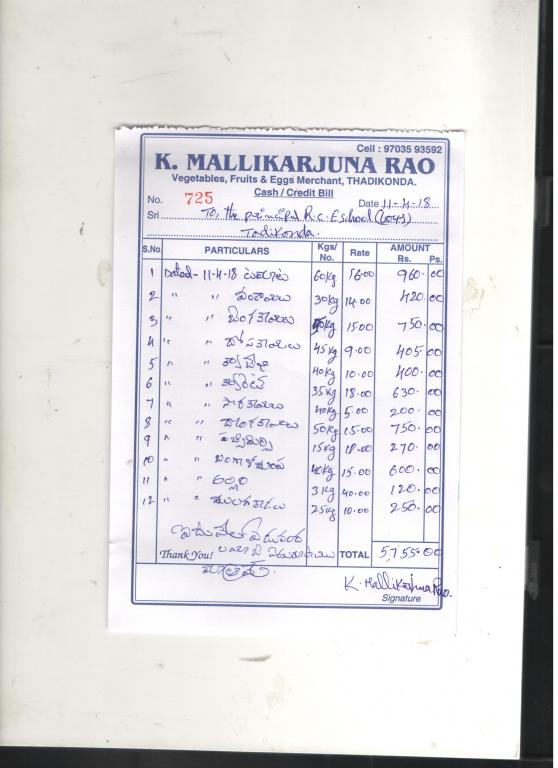 Cell : 97035 93592
K. MALLIKARJUNA RAO
Vegetables, Fruits & Eggs Merchant, THADIKONDA.
Cash / Credit Bill
No. 725 Date 11-4-18
Sri To, the principal R.C.E School (Boys)
Tadikonda.
S.No. PARTICULARS Kgs/No. Rate AMOUNT Rs. Ps.
1 Dated- 11-4-18 60kg 16.00 960.00
2 " " 30kg 14.00 420.00
3 " " వంకాయలు 50kg 15.00 750.00
4 " " దోసకాయలు 45kg 9.00 405.00
5 " " క్యాబేజి 40kg 10.00 400.00
6 " " క్యారెట్ 35kg 18.00 630.00
7 " " సొరకాయలు 40kg 5.00 200.00
8 " " 50kg 15.00 750.00
9 " " పచ్చిమిర్చి 15kg 18.00 270.00
10 " " బంగాళదుంప 40kg 15.00 600.00
11 " " 3kg 40.00 120.00
12 " " ములగకాడలు 25kg 10.00 250.00
Thank You! TOTAL 5,755.00
మాత్రమే.
K. Mallikarjuna Rao.
Signature